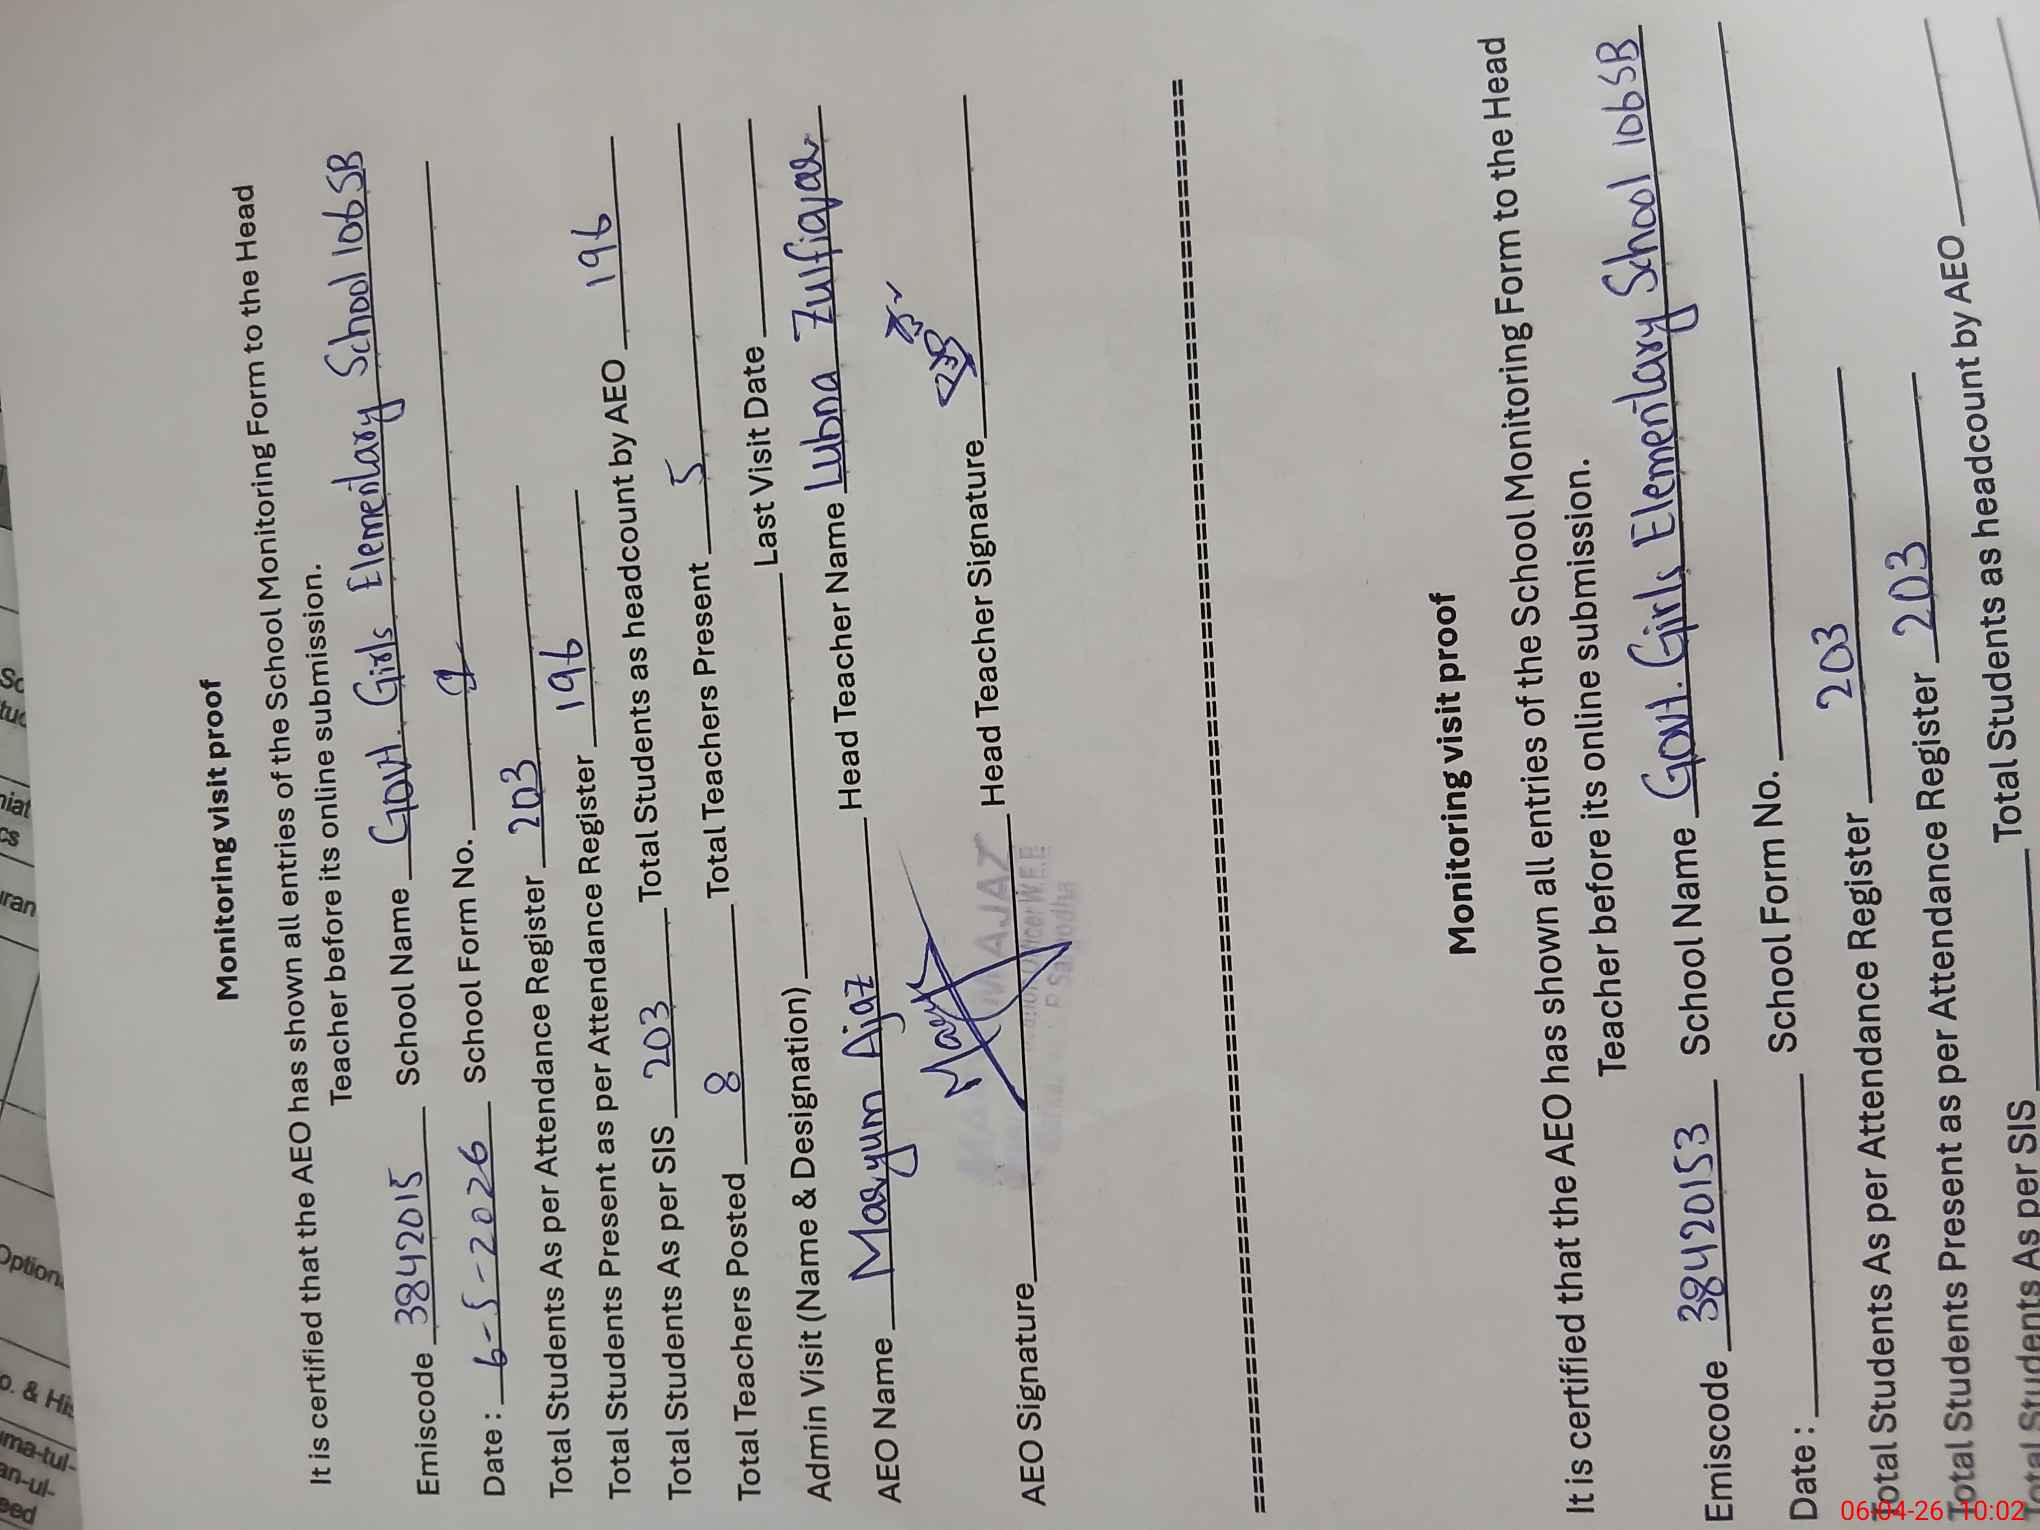 Monitoring visit proof
It is certified that the AEO has shown all entries of the School Monitoring Form to the Head
Teacher before its online submission.
Emiscode 3842015 School Name Govt. Girls Elementary School 106 SB
Date : 6-5-2026 School Form No.
Total Students As per Attendance Register 203
Total Students Present as per Attendance Register 196
Total Students As per SIS 203 Total Students as headcount by AEO 196
Total Teachers Posted 8 Total Teachers Present 5
Admin Visit (Name & Designation) Last Visit Date
AEO Name Maryum Ajaz Head Teacher Name Lubna Zulfiqar
AEO Signature Head Teacher Signature
AJAZ
Monitoring visit proof
It is certified that the AEO has shown all entries of the School Monitoring Form to the Head
Teacher before its online submission.
Emiscode 38420153 School Name Govt. Girls Elementary School 106 SB
Date : School Form No.
Total Students As per Attendance Register 203
Total Students Present as per Attendance Register 203
Total Students As per SIS Total Students as headcount by AEO
06-04-26 10:02